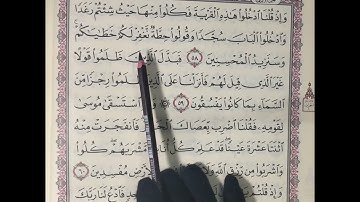 وَإِذْ قُلْنَا ٱدْخُلُوا۟ هَٰذِهِ ٱلْقَرْيَةَ فَكُلُوا۟ مِنْهَا حَيْثُ شِئْتُمْ رَغَدًا
وَٱدْخُلُوا۟ ٱلْبَابَ سُجَّدًا وَقُولُوا۟ حِطَّةٌ نَّغْفِرْ لَكُمْ خَطَٰيَٰكُمْ
وَسَنَزِيدُ ٱلْمُحْسِنِينَ ٥٨ فَبَدَّلَ ظَلَمُوا۟ قَوْلًا
غَيْرَ ٱلَّذِى قِيلَ لَهُمْ فَأَنزَلْنَا عَلَى ٱلَّذِينَ ظَلَمُوا۟ رِجْزًا مِّنَ
ٱلسَّمَآءِ بِمَا كَانُوا۟ يَفْسُقُونَ ٥٩ ٱسْتَسْقَىٰ مُوسَىٰ
لِقَوْمِهِۦ فَقُلْنَا ٱضْرِب بِّعَصَاكَ فَٱنفَجَرَتْ مِنْهُ
ٱثْنَتَا عَشْرَةَ عَيْنًا قَدْ عَلِمَ كُلُّ مَّشْرَبَهُمْ كُلُوا۟
وَٱشْرَبُوا۟ مِن رِّزْقِ ٱللَّهِ وَلَا مُفْسِدِينَ ٦٠
وَإِذْ قُلْتُمْ فَٱدْعُ لَنَا رَبَّكَ